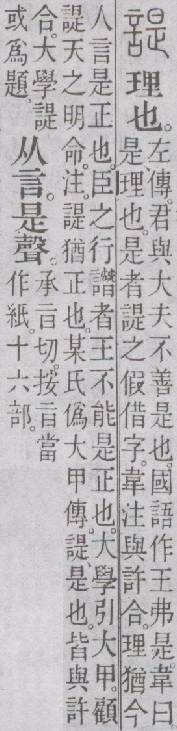 諟
理也。
左傳。君與大夫不善是也。國語作王弗是。韋曰
是、理也。是者諟之假借字。韋注與許合。理猶今
人言是正也。臣之行譖者王不能是正也。大學引大甲。顧
諟天之明命。注。諟猶正也。某氏僞大甲傳。諟、是也。皆與許
合。大學諟
或爲題。
从言。是聲。
承旨切。按旨當
作紙。十六部。